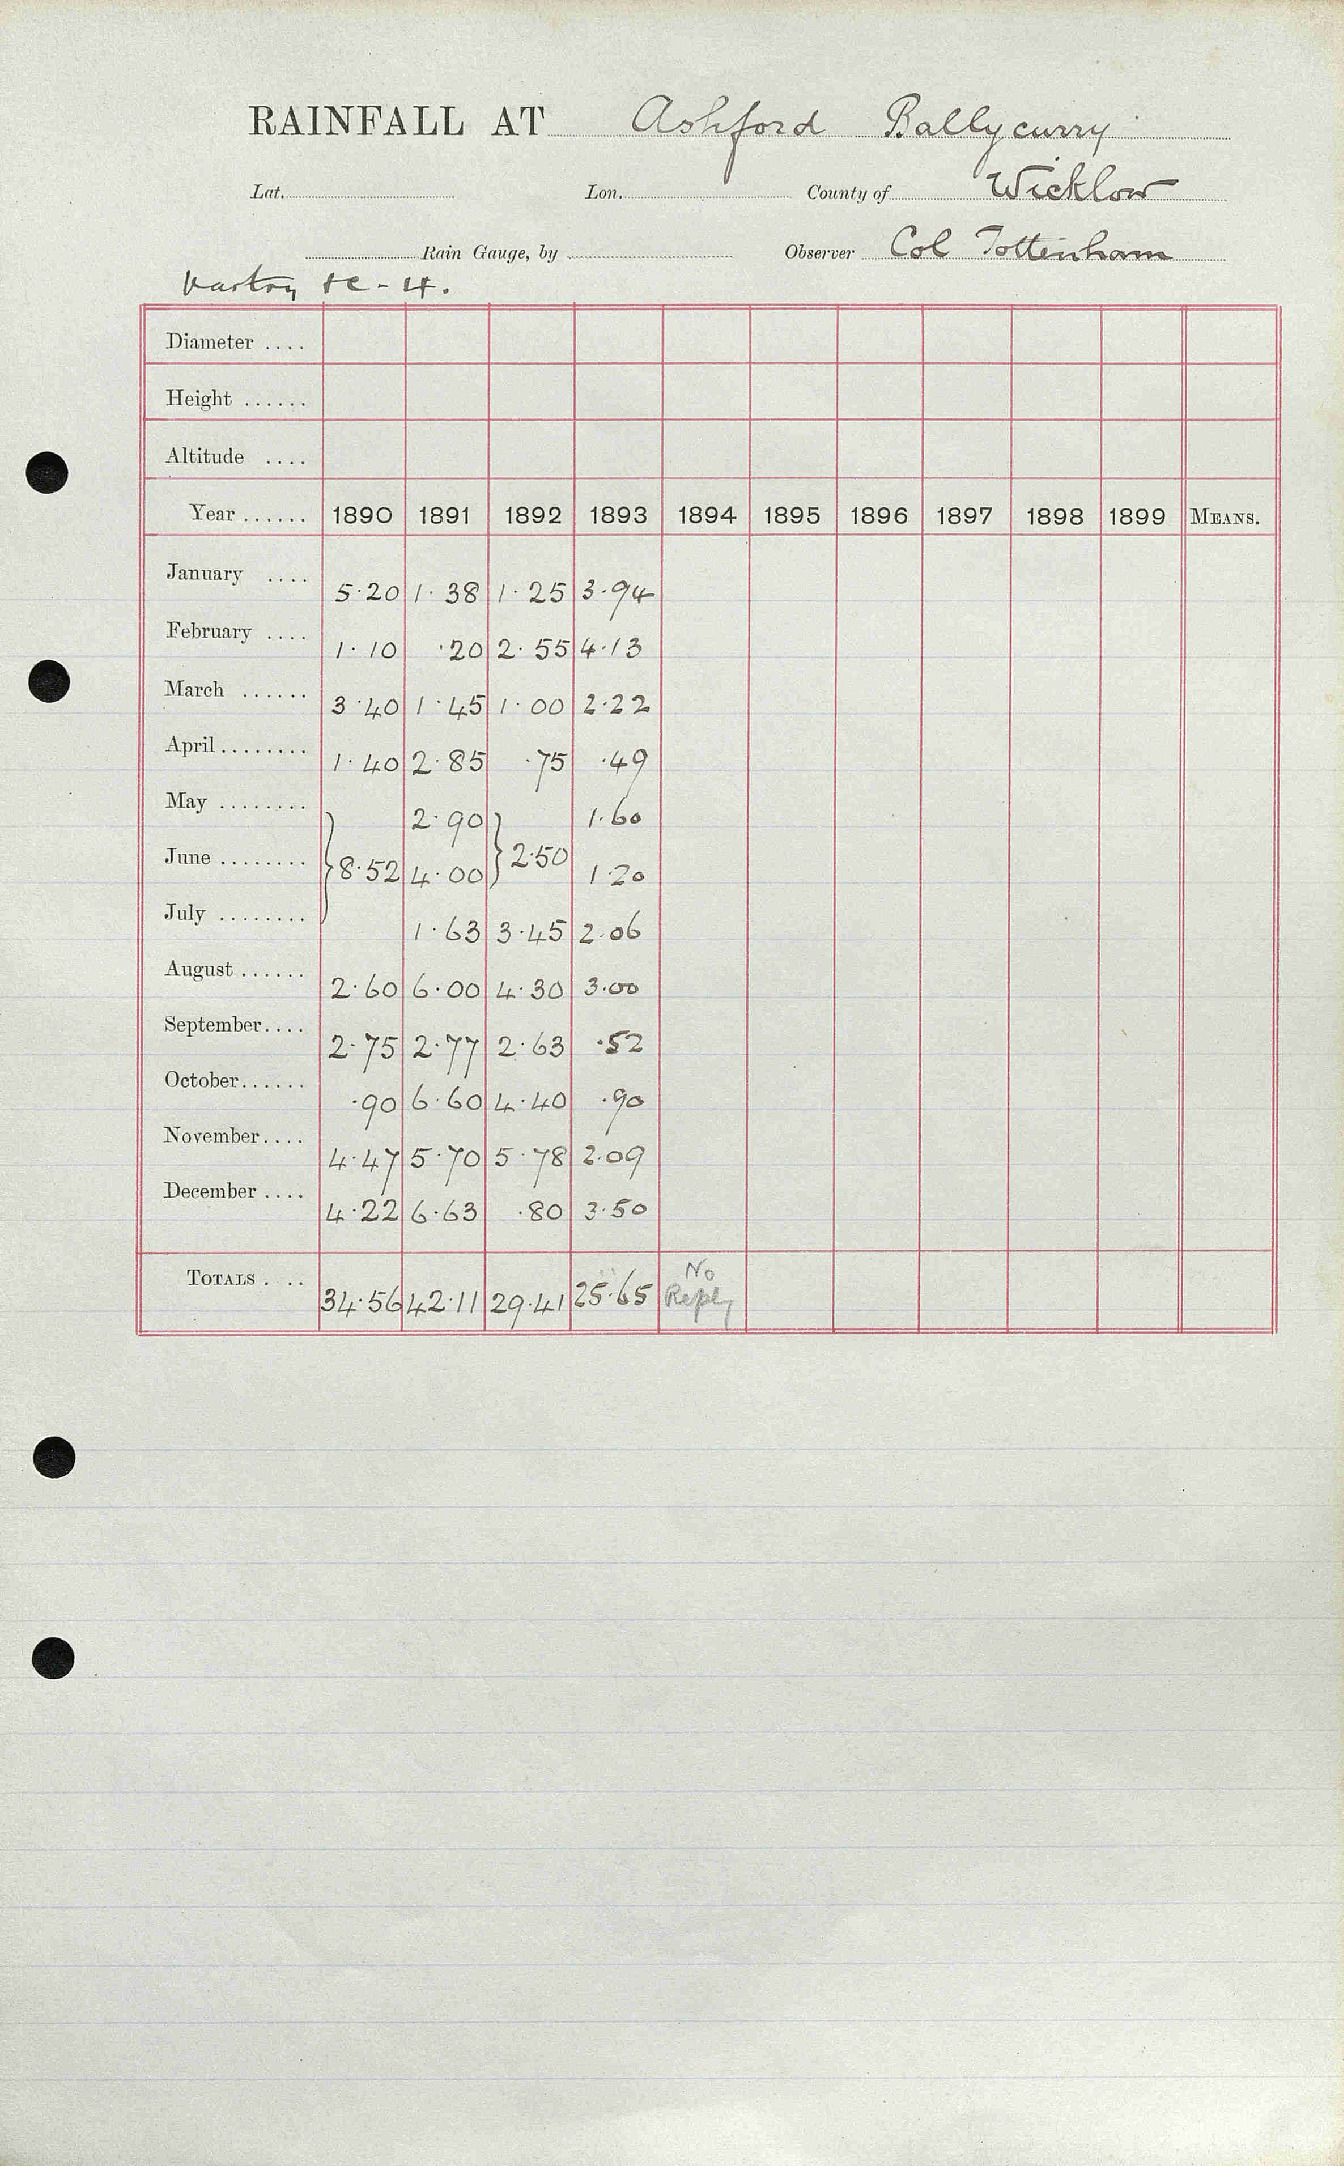 RAINFALL AT Ashford Ballycurry
Lat. Lon. County of Wicklow
Rain Gauge, by Observer Col Tottenham
Vartry
Diameter ....
Height ......
Altitude ....
Year ...... 1890 1891 1892 1893 1894 1895 1896 1897 1898 1899 MEANS.
January .... 5.20 1.38 1.25 3.94
February .... 1.10 .20 2.55 4.13
March ...... 3.40 1.45 1.00 2.22
April ........ 1.40 2.85 .75 .49
May ........ 2.90 1.60
June ........ } 8.52 4.00 } 2.50 1.20
July ........ 1.63 3.45 2.06
August ...... 2.60 6.00 4.30 3.00
September.... 2.75 2.77 2.63 .52
October...... .90 6.60 4.40 .90
November.... 4.47 5.70 5.78 2.09
December .... 4.22 6.63 .80 3.50
TOTALS . .. 34.56 42.11 29.41 25.65 No Reply